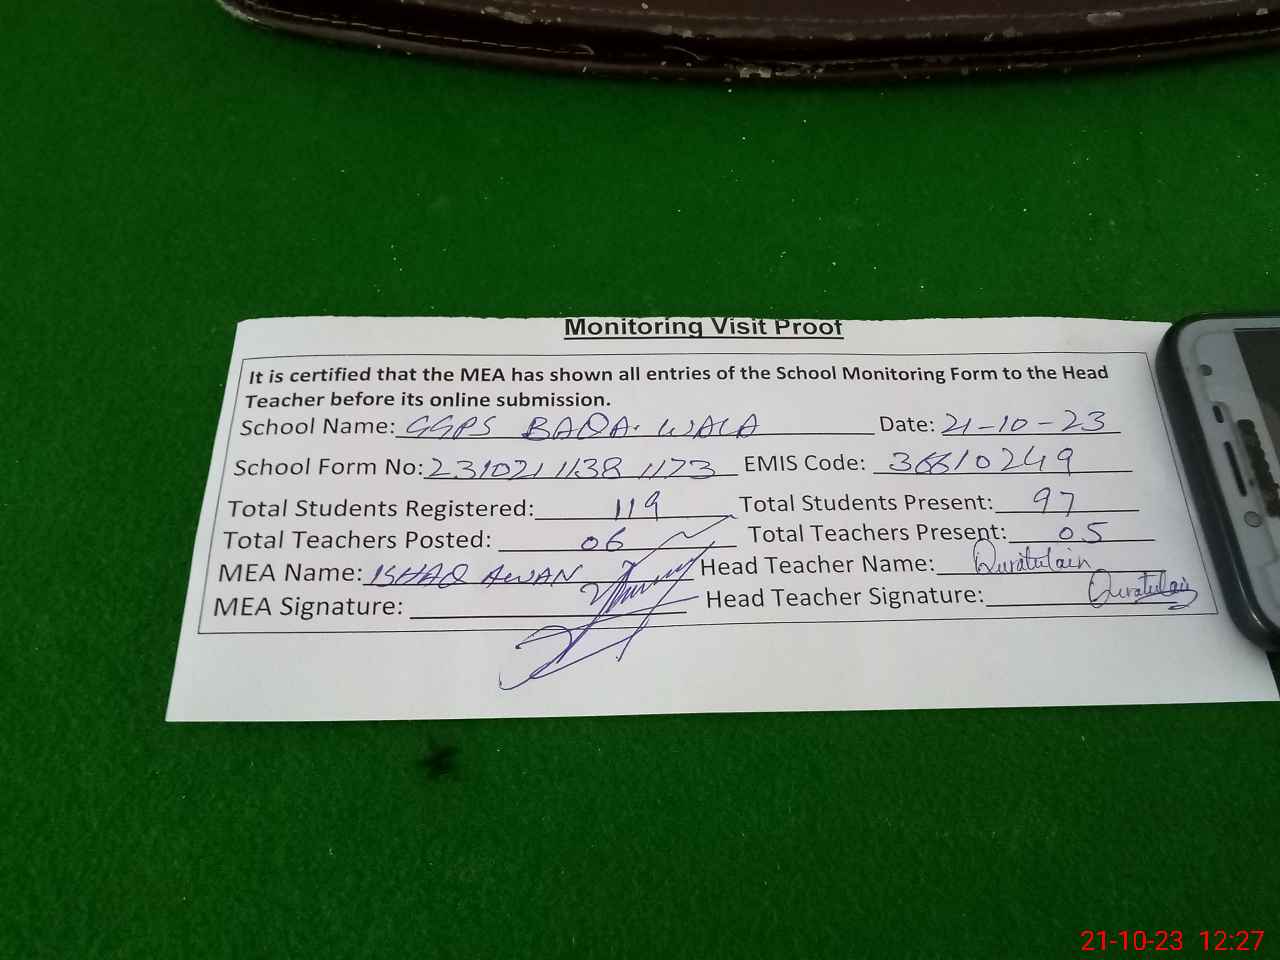 Monitoring Visit Proof
It is certified that the MEA has shown all entries of the School Monitoring Form to the Head
Teacher before its online submission.
School Name: GGPS BAQA. WALA Date: 21-10-23
School Form No: 231021 1138 1173 EMIS Code: 36610249
Total Students Registered: 119 Total Students Present: 97
Total Teachers Posted: 06 Total Teachers Present: 05
MEA Name: ISHAQ AWAN Head Teacher Name: Quratulain
MEA Signature: Head Teacher Signature: Quratulain
21-10-23 12:27